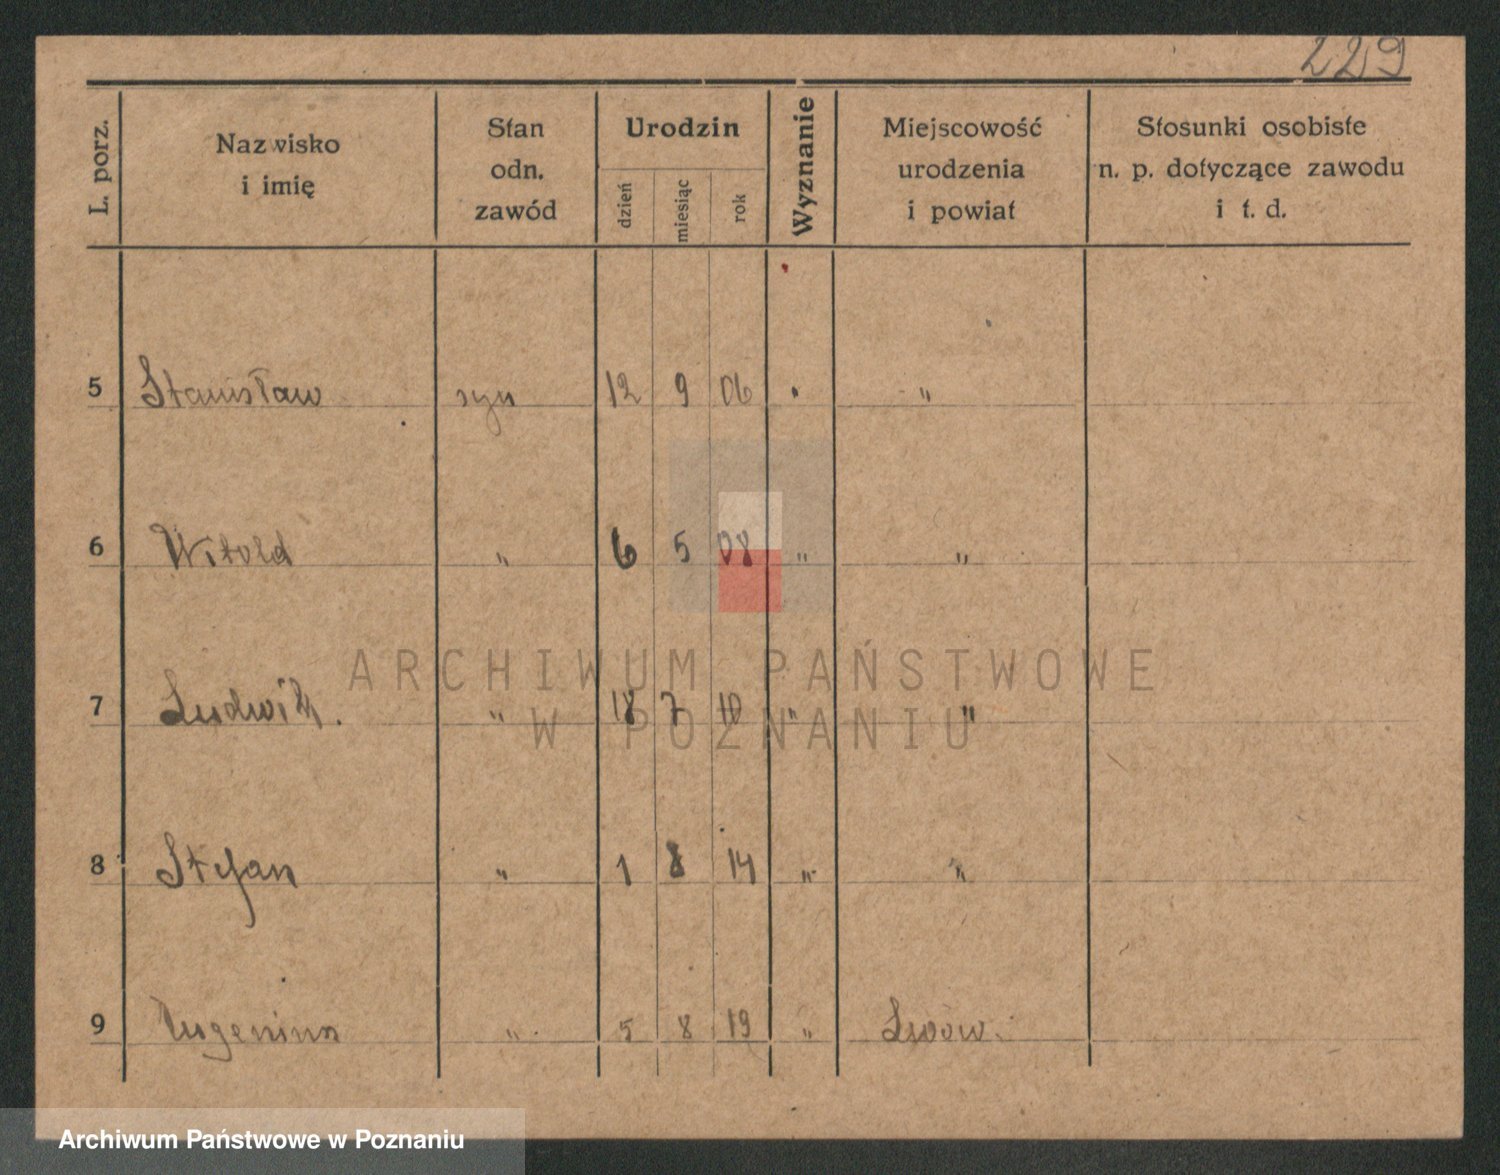 229
L. porz.
Nazwisko
i imię
Stan
odn.
zawód
Urodzin
dzień
miesiąc
rok
Wyznanie
Miejscowość
urodzenia
i powiat
Stosunki osobiste
n. p. dotyczące zawodu
i t. d.
5 Stanisław syn 12 9 06 " "
6 Witold " 6 5 08 " "
7 Ludwik. " 18 7 10 " "
8 Stefan " 1 8 14 " "
9 " 5 8 19 " Lwów.
ARCHIWUM PAŃSTWOWE
W POZNANIU
Archiwum Państwowe w Poznaniu